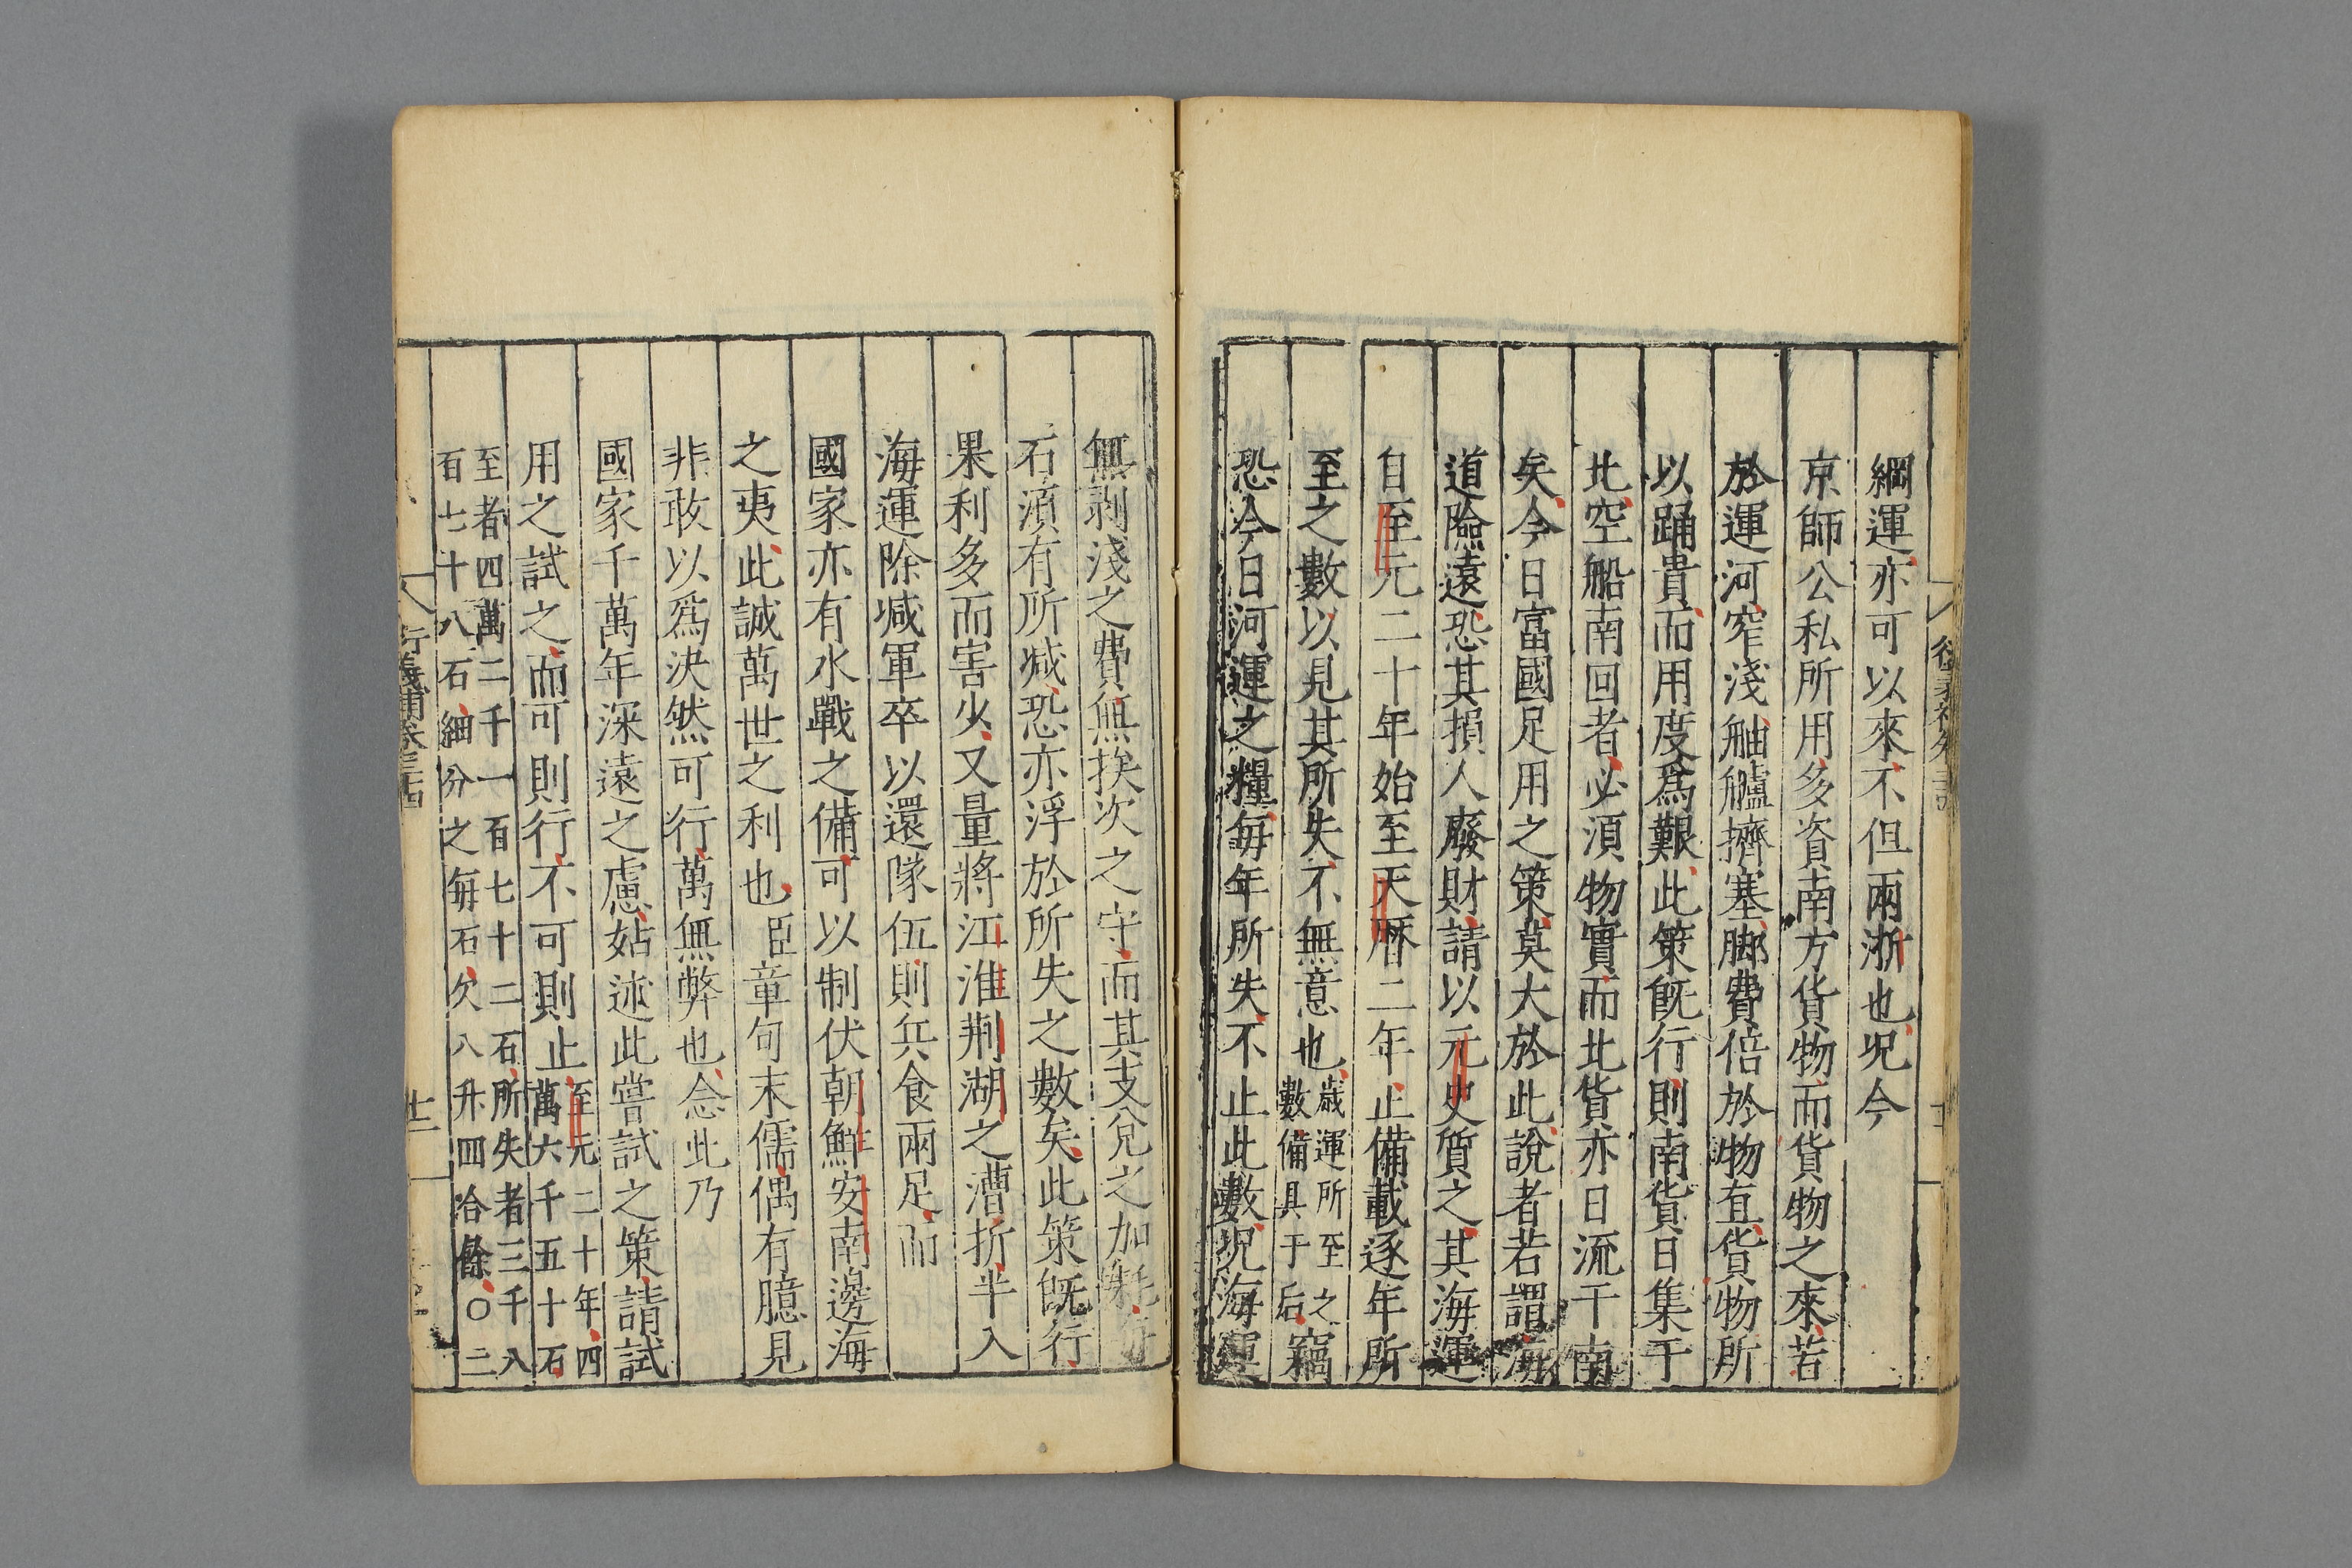 綱運亦可以來不但兩浙也況今
京師公私所用多資南方貨物而貨物之來若
於運河窄淺舳艫擠塞脚費倍於物直貨物所
以踊貴而用度爲艱此策旣行則南貨日集于
北空船南回者必須物實而北貨亦日流于南
矣今日富國足用之策莫大於此說者若謂海
道險遠恐其損人廢財請以元史質之其海運
自至元二十年始至天曆二年止備載逐年所
至之數以見其所失不無意也歲運所至之數備具于后竊
恐今日河運之糧每年所失不止此數況海運
無剥淺之費無挨次之守而其支兌之加耗每
石須有所减恐亦浮於所失之數矣此策旣行
果利多而害少又量將江淮荆湖之漕折半入
海運除减軍卒以還隊伍則兵食兩足而
國家亦有水戰之備可以制伏朝鮮安南邊海
之夷此誠萬世之利也臣章句末儒偶有臆見
非敢以爲決然可行萬無弊也念此乃
國家千萬年深遠之慮姑述此嘗試之策請試
用之試之而可則行不可則止至元二十年四萬六千五十石
至者四萬二千一百七十二石所失者三千八
百七十八石細分之每石欠八升四合餘〇二